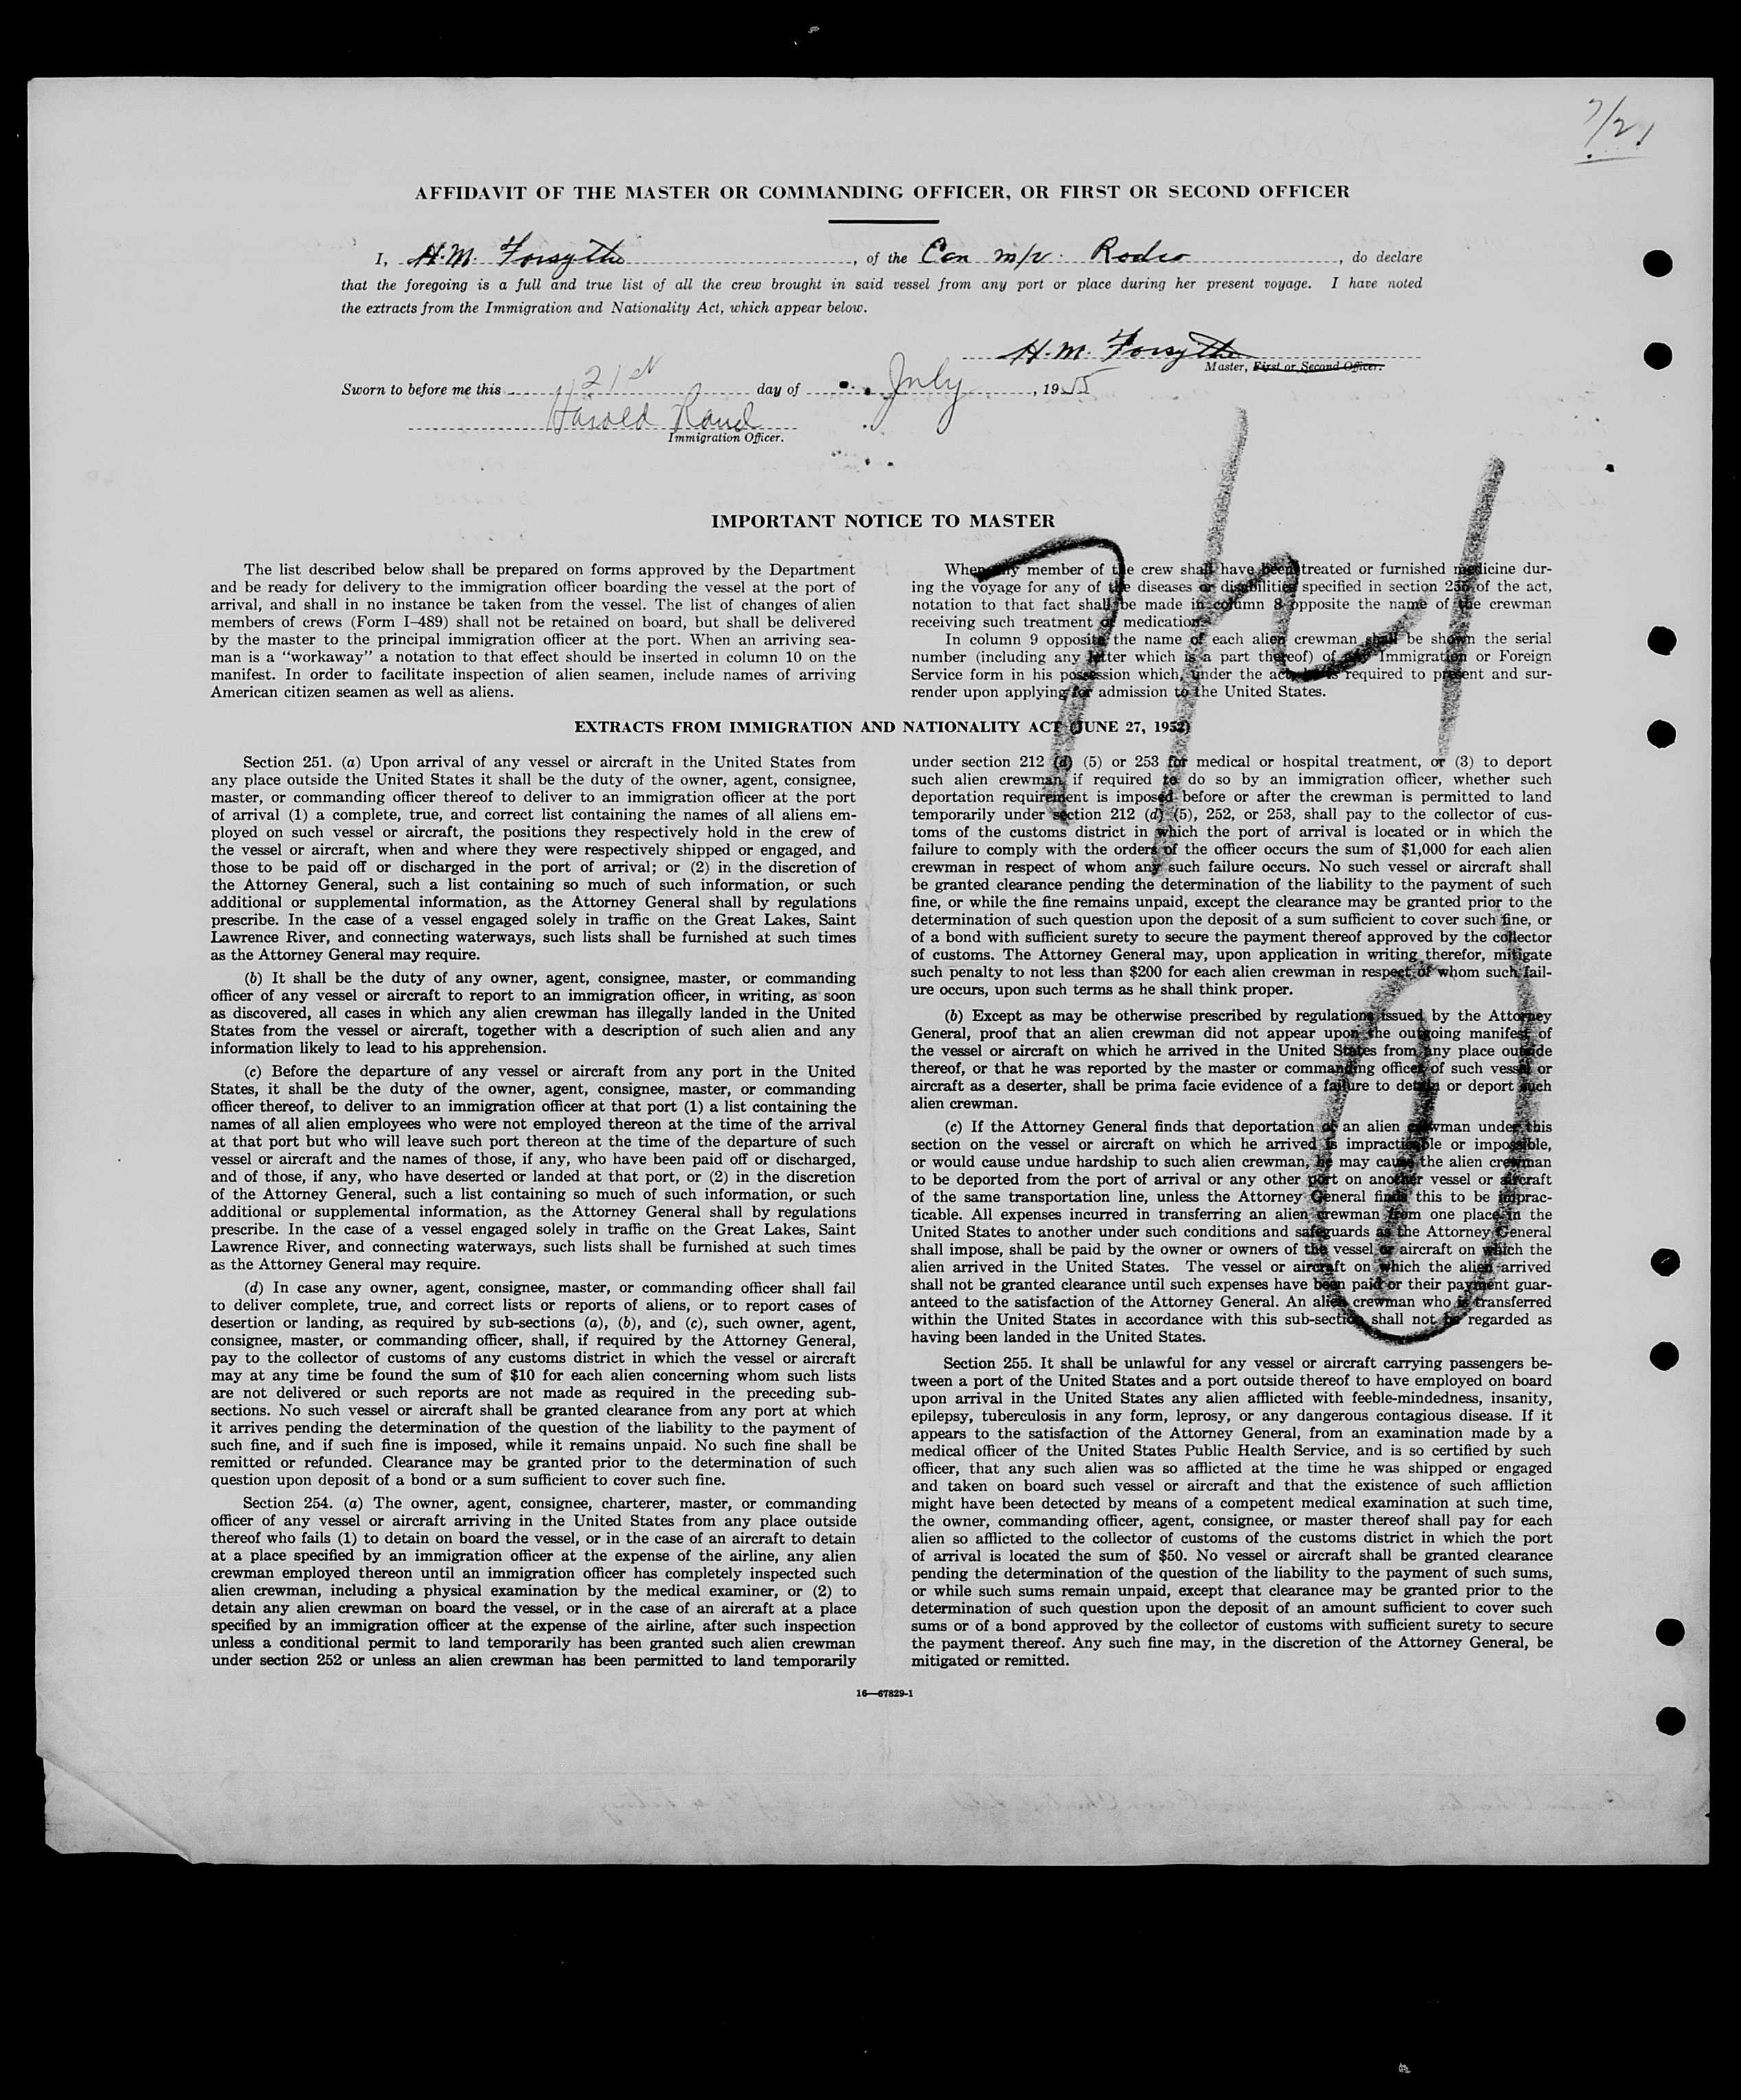 7/21
AFFIDAVIT OF THE MASTER OR COMMANDING OFFICER, OR FIRST OR SECOND OFFICER
I, H.M. Forsythe, of the Can m/v. Rodeo, do declare
that the foregoing is a full and true list of all the crew brought in said vessel from any port or place during her present voyage. I have noted
the extracts from the Immigration and Nationality Act, which appear below.
H.M. Forsythe
Master, First or Second Officer.
Sworn to before me this 21st day of July, 1955
Harold Rand
Immigration Officer.
IMPORTANT NOTICE TO MASTER
The list described below shall be prepared on forms approved by the Department
and be ready for delivery to the immigration officer boarding the vessel at the port of
arrival, and shall in no instance be taken from the vessel. The list of changes of alien
members of crews (Form I–489) shall not be retained on board, but shall be delivered
by the master to the principal immigration officer at the port. When an arriving sea-
man is a “workaway” a notation to that effect should be inserted in column 10 on the
manifest. In order to facilitate inspection of alien seamen, include names of arriving
American citizen seamen as well as aliens.
When any member of the crew shall have been treated or furnished medicine dur-
ing the voyage for any of the diseases or disabilities specified in section 255 of the act,
notation to that fact shall be made in column 8 opposite the name of the crewman
receiving such treatment or medication.
In column 9 opposite the name of each alien crewman shall be shown the serial
number (including any letter which is a part thereof) of any Immigration or Foreign
Service form in his possession which, under the act, he is required to present and sur-
render upon applying for admission to the United States.
7/21
EXTRACTS FROM IMMIGRATION AND NATIONALITY ACT (JUNE 27, 1952)
Section 251. (a) Upon arrival of any vessel or aircraft in the United States from
any place outside the United States it shall be the duty of the owner, agent, consignee,
master, or commanding officer thereof to deliver to an immigration officer at the port
of arrival (1) a complete, true, and correct list containing the names of all aliens em-
ployed on such vessel or aircraft, the positions they respectively hold in the crew of
the vessel or aircraft, when and where they were respectively shipped or engaged, and
those to be paid off or discharged in the port of arrival; or (2) in the discretion of
the Attorney General, such a list containing so much of such information, or such
additional or supplemental information, as the Attorney General shall by regulations
prescribe. In the case of a vessel engaged solely in traffic on the Great Lakes, Saint
Lawrence River, and connecting waterways, such lists shall be furnished at such times
as the Attorney General may require.
(b) It shall be the duty of any owner, agent, consignee, master, or commanding
officer of any vessel or aircraft to report to an immigration officer, in writing, as soon
as discovered, all cases in which any alien crewman has illegally landed in the United
States from the vessel or aircraft, together with a description of such alien and any
information likely to lead to his apprehension.
(c) Before the departure of any vessel or aircraft from any port in the United
States, it shall be the duty of the owner, agent, consignee, master, or commanding
officer thereof, to deliver to an immigration officer at that port (1) a list containing the
names of all alien employees who were not employed thereon at the time of the arrival
at that port but who will leave such port thereon at the time of the departure of such
vessel or aircraft and the names of those, if any, who have been paid off or discharged,
and of those, if any, who have deserted or landed at that port, or (2) in the discretion
of the Attorney General, such a list containing so much of such information, or such
additional or supplemental information, as the Attorney General shall by regulations
prescribe. In the case of a vessel engaged solely in traffic on the Great Lakes, Saint
Lawrence River, and connecting waterways, such lists shall be furnished at such times
as the Attorney General may require.
(d) In case any owner, agent, consignee, master, or commanding officer shall fail
to deliver complete, true, and correct lists or reports of aliens, or to report cases of
desertion or landing, as required by sub-sections (a), (b), and (c), such owner, agent,
consignee, master, or commanding officer, shall, if required by the Attorney General,
pay to the collector of customs of any customs district in which the vessel or aircraft
may at any time be found the sum of $10 for each alien concerning whom such lists
are not delivered or such reports are not made as required in the preceding sub-
sections. No such vessel or aircraft shall be granted clearance from any port at which
it arrives pending the determination of the question of the liability to the payment of
such fine, and if such fine is imposed, while it remains unpaid. No such fine shall be
remitted or refunded. Clearance may be granted prior to the determination of such
question upon deposit of a bond or a sum sufficient to cover such fine.
Section 254. (a) The owner, agent, consignee, charterer, master, or commanding
officer of any vessel or aircraft arriving in the United States from any place outside
thereof who fails (1) to detain on board the vessel, or in the case of an aircraft to detain
at a place specified by an immigration officer at the expense of the airline, any alien
crewman employed thereon until an immigration officer has completely inspected such
alien crewman, including a physical examination by the medical examiner, or (2) to
detain any alien crewman on board the vessel, or in the case of an aircraft at a place
specified by an immigration officer at the expense of the airline, after such inspection
unless a conditional permit to land temporarily has been granted such alien crewman
under section 252 or unless an alien crewman has been permitted to land temporarily
under section 212 (d) (5) or 253 for medical or hospital treatment, or (3) to deport
such alien crewman if required to do so by an immigration officer, whether such
deportation requirement is imposed before or after the crewman is permitted to land
temporarily under section 212 (d) (5), 252, or 253, shall pay to the collector of cus-
toms of the customs district in which the port of arrival is located or in which the
failure to comply with the orders of the officer occurs the sum of $1,000 for each alien
crewman in respect of whom any such failure occurs. No such vessel or aircraft shall
be granted clearance pending the determination of the liability to the payment of such
fine, or while the fine remains unpaid, except the clearance may be granted prior to the
determination of such question upon the deposit of a sum sufficient to cover such fine, or
of a bond with sufficient surety to secure the payment thereof approved by the collector
of customs. The Attorney General may, upon application in writing therefor, mitigate
such penalty to not less than $200 for each alien crewman in respect of whom such fail-
ure occurs, upon such terms as he shall think proper.
(b) Except as may be otherwise prescribed by regulations issued by the Attorney
General, proof that an alien crewman did not appear upon the outgoing manifest of
the vessel or aircraft on which he arrived in the United States from any place outside
thereof, or that he was reported by the master or commanding officer of such vessel or
aircraft as a deserter, shall be prima facie evidence of a failure to detain or deport such
alien crewman.
(c) If the Attorney General finds that deportation of an alien crewman under this
section on the vessel or aircraft on which he arrived is impracticable or impossible,
or would cause undue hardship to such alien crewman, he may cause the alien crewman
to be deported from the port of arrival or any other port on another vessel or aircraft
of the same transportation line, unless the Attorney General finds this to be imprac-
ticable. All expenses incurred in transferring an alien crewman from one place in the
United States to another under such conditions and safeguards as the Attorney General
shall impose, shall be paid by the owner or owners of the vessel or aircraft on which the
alien arrived in the United States. The vessel or aircraft on which the alien arrived
shall not be granted clearance until such expenses have been paid or their payment guar-
anteed to the satisfaction of the Attorney General. An alien crewman who is transferred
within the United States in accordance with this sub-section shall not be regarded as
having been landed in the United States.
Section 255. It shall be unlawful for any vessel or aircraft carrying passengers be-
tween a port of the United States and a port outside thereof to have employed on board
upon arrival in the United States any alien afflicted with feeble-mindedness, insanity,
epilepsy, tuberculosis in any form, leprosy, or any dangerous contagious disease. If it
appears to the satisfaction of the Attorney General, from an examination made by a
medical officer of the United States Public Health Service, and is so certified by such
officer, that any such alien was so afflicted at the time he was shipped or engaged
and taken on board such vessel or aircraft and that the existence of such affliction
might have been detected by means of a competent medical examination at such time,
the owner, commanding officer, agent, consignee, or master thereof shall pay for each
alien so afflicted to the collector of customs of the customs district in which the port
of arrival is located the sum of $50. No vessel or aircraft shall be granted clearance
pending the determination of the question of the liability to the payment of such sums,
or while such sums remain unpaid, except that clearance may be granted prior to the
determination of such question upon the deposit of an amount sufficient to cover such
sums or of a bond approved by the collector of customs with sufficient surety to secure
the payment thereof. Any such fine may, in the discretion of the Attorney General, be
mitigated or remitted.
16—67829-1